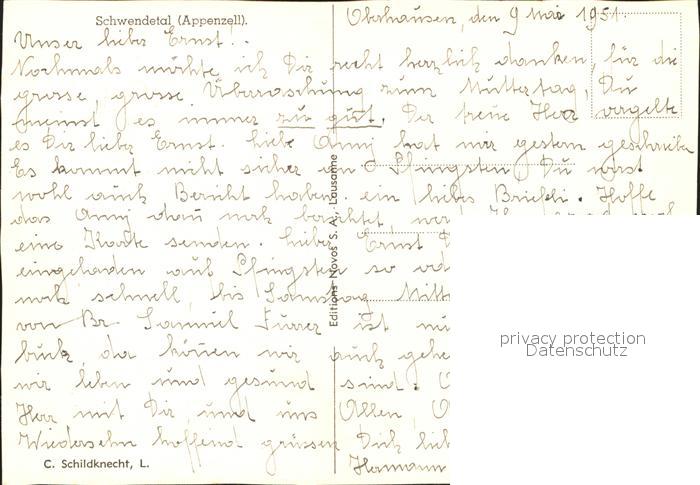 Schwendetal (Appenzell).
Oberhausen, den 9 Mai 1951.
Unser lieber Ernst!
Nochmals möchte ich Dir recht herzlich danken, für die
grosse, grosse Überraschung zum Muttertag, Du
meinst es immer zu gut. Der treue Herr vergelte
es Dir lieber Ernst. Liebe Anny hat mir gestern geschrieben
Es kommt nicht sicher an Pfingsten, Du wirst
wohl auch Bericht haben. ein liebes Briefli. Hoffe
das Anny dann noch berichtet,
eine Karte senden. Lieber Ernst
eingeladen auf Pfingsten so
noch schnell, bis Samstag
von Br. Samuel Furrer ist
buck, da können wir auch
wir leben und gesund sind.
Herr mit Dir und uns Allen,
Wiedersehn hoffend grüssen Dich
Hermann
Editions Novos S. A., Lausanne
C. Schildknecht, L.
privacy protection
Datenschutz